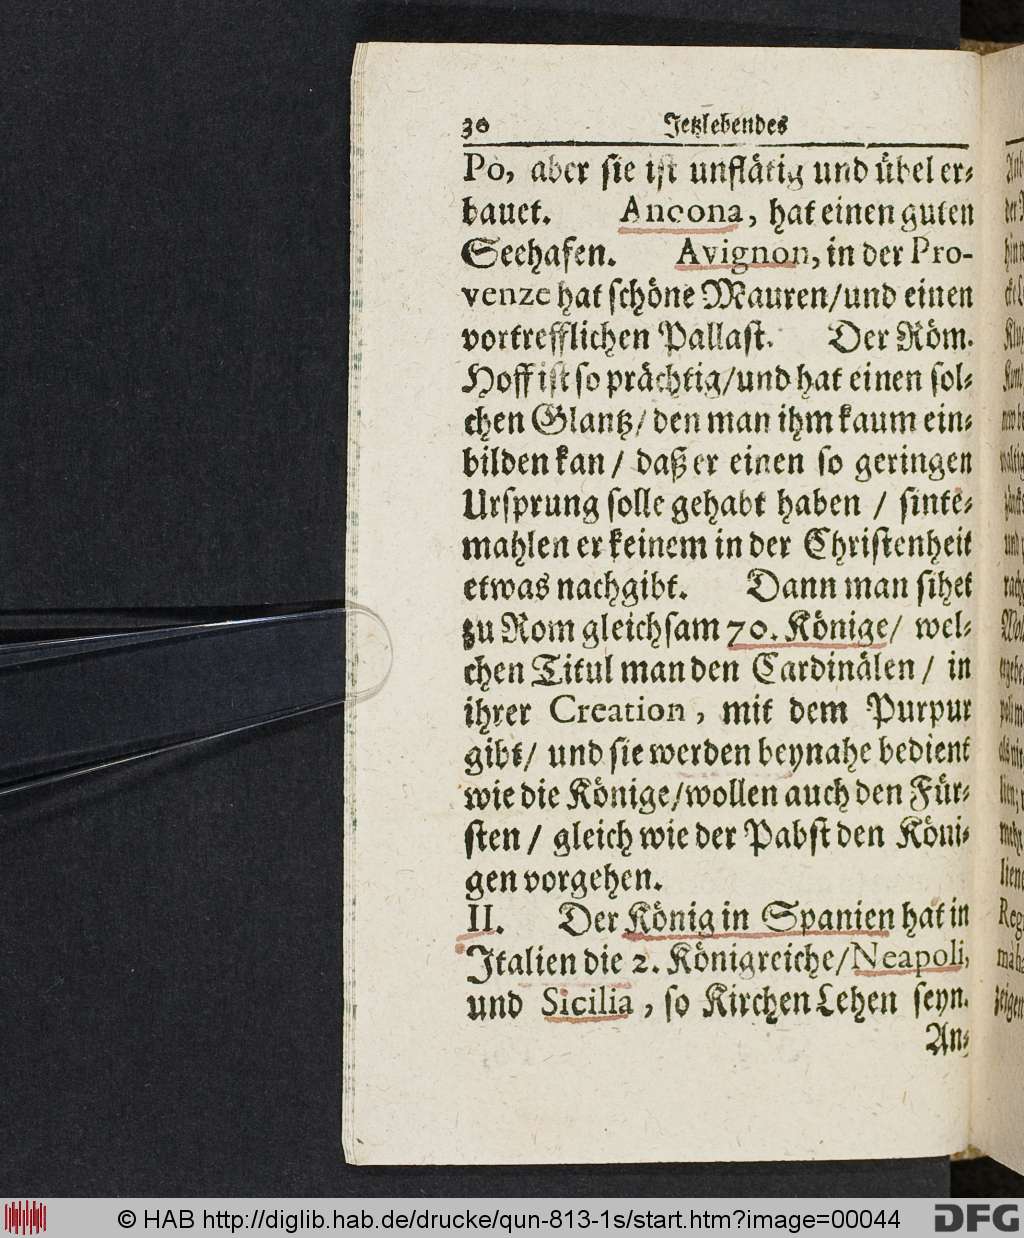 30 Jetzlebendes
Po, aber sie ist unflätig und übel er⸗
bauet. Ancona, hat einen guten
Seehafen. Avignon, in der Pro-
venze hat schöne Mauren/und einen
vortrefflichen Pallast. Der Röm.
Hoff ist so prächtig/und hat einen sol⸗
chen Glantz/ den man ihm kaum ein⸗
bilden kan / daß er einen so geringen
Ursprung solle gehabt haben / sinte⸗
mahlen er keinem in der Christenheit
etwas nachgibt. Dann man sihet
zu Rom gleichsam 70. Könige/ wel⸗
chen Titul man den Cardinälen / in
ihrer Creation, mit dem Purpur
gibt/ und sie werden beynahe bedient
wie die Könige/wollen auch den Für⸗
sten / gleich wie der Pabst den Köni⸗
gen vorgehen.
II. Der König in Spanien hat in
Italien die 2. Königreiche/Neapoli,
und Sicilia, so Kirchen Lehen seyn.
An⸗
© HAB http://diglib.hab.de/drucke/qun-813-1s/start.htm?image=00044
DFG